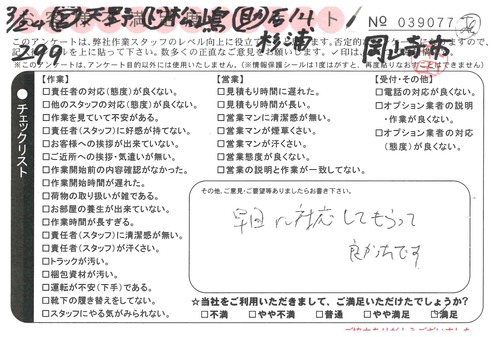 № 039077
299
杉浦
岡崎市
このアンケートは、弊社作業スタッフのレベル向上に役立
※このアンケートは、アンケート目的以外には使用いたしません。(※情報保護シールは1度はがすと、再度貼りなおすことはできません)
チェックリスト
【作業】
□責任者の対応(態度)が良くない。
□他のスタッフの対応(態度)が良くない。
□作業を見ていて不安がある。
□責任者(スタッフ)に好感が持てない。
□お客様への挨拶が出来ていない。
□ご近所への挨拶・気遣いが無い。
□作業開始前の内容確認がなかった。
□作業開始時間が遅れた。
□荷物の取り扱いが雑である。
□お部屋の養生が出来ていない。
□作業時間が長すぎる。
□責任者(スタッフ)に清潔感が無い。
□責任者(スタッフ)が汗くさい。
□トラックが汚い。
□梱包資材が汚い。
□運転が不安(下手)である。
□靴下の履き替えをしてない。
□スタッフにやる気がみられない。
【営業】
□見積もり時間に遅れた。
□見積もり時間が長い。
□営業マンに清潔感が無い。
□営業マンが煙草くさい。
□営業マンが汗くさい。
□営業態度が良くない。
□営業の説明と作業が一致してない。
【受付・その他】
□電話の対応が良くない。
□オプション業者の説明
・作業が良くない。
□オプション業者の対応
(態度)が良くない。
その他、ご意見・ご要望等ありましたらお書き下さい。
早目に対応してもらって
良かったです
☆当社をご利用いただきまして、ご満足いただけたでしょうか?
□不満 □やや不満 □普通 □やや満足 ☑満足
ご協力ありがとうございました